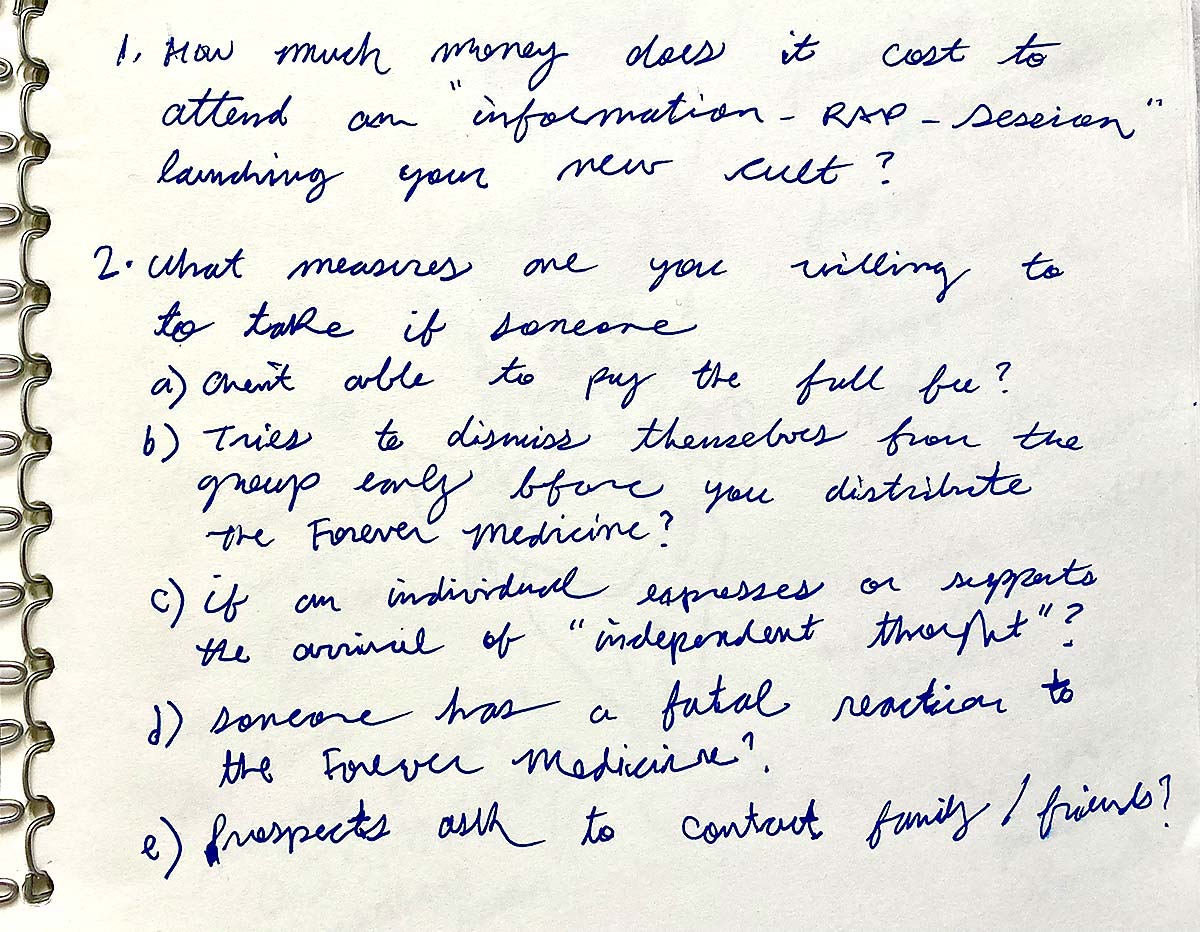 1. How much money does it cost to
attend an "information - RAP - session"
launching your new cult?
2. What measures are you willing to
to take if someone
a) arent able to pay the full fee?
b) Tries to dismiss themselves from the
group early bfore you distribute
the Forever Medicine?
c) if an individual expresses or supports
the arrival of "independent thought"?
d) someone has a fatal reaction to
the Forever Medicine?
e) prospects ask to contact family / friends?